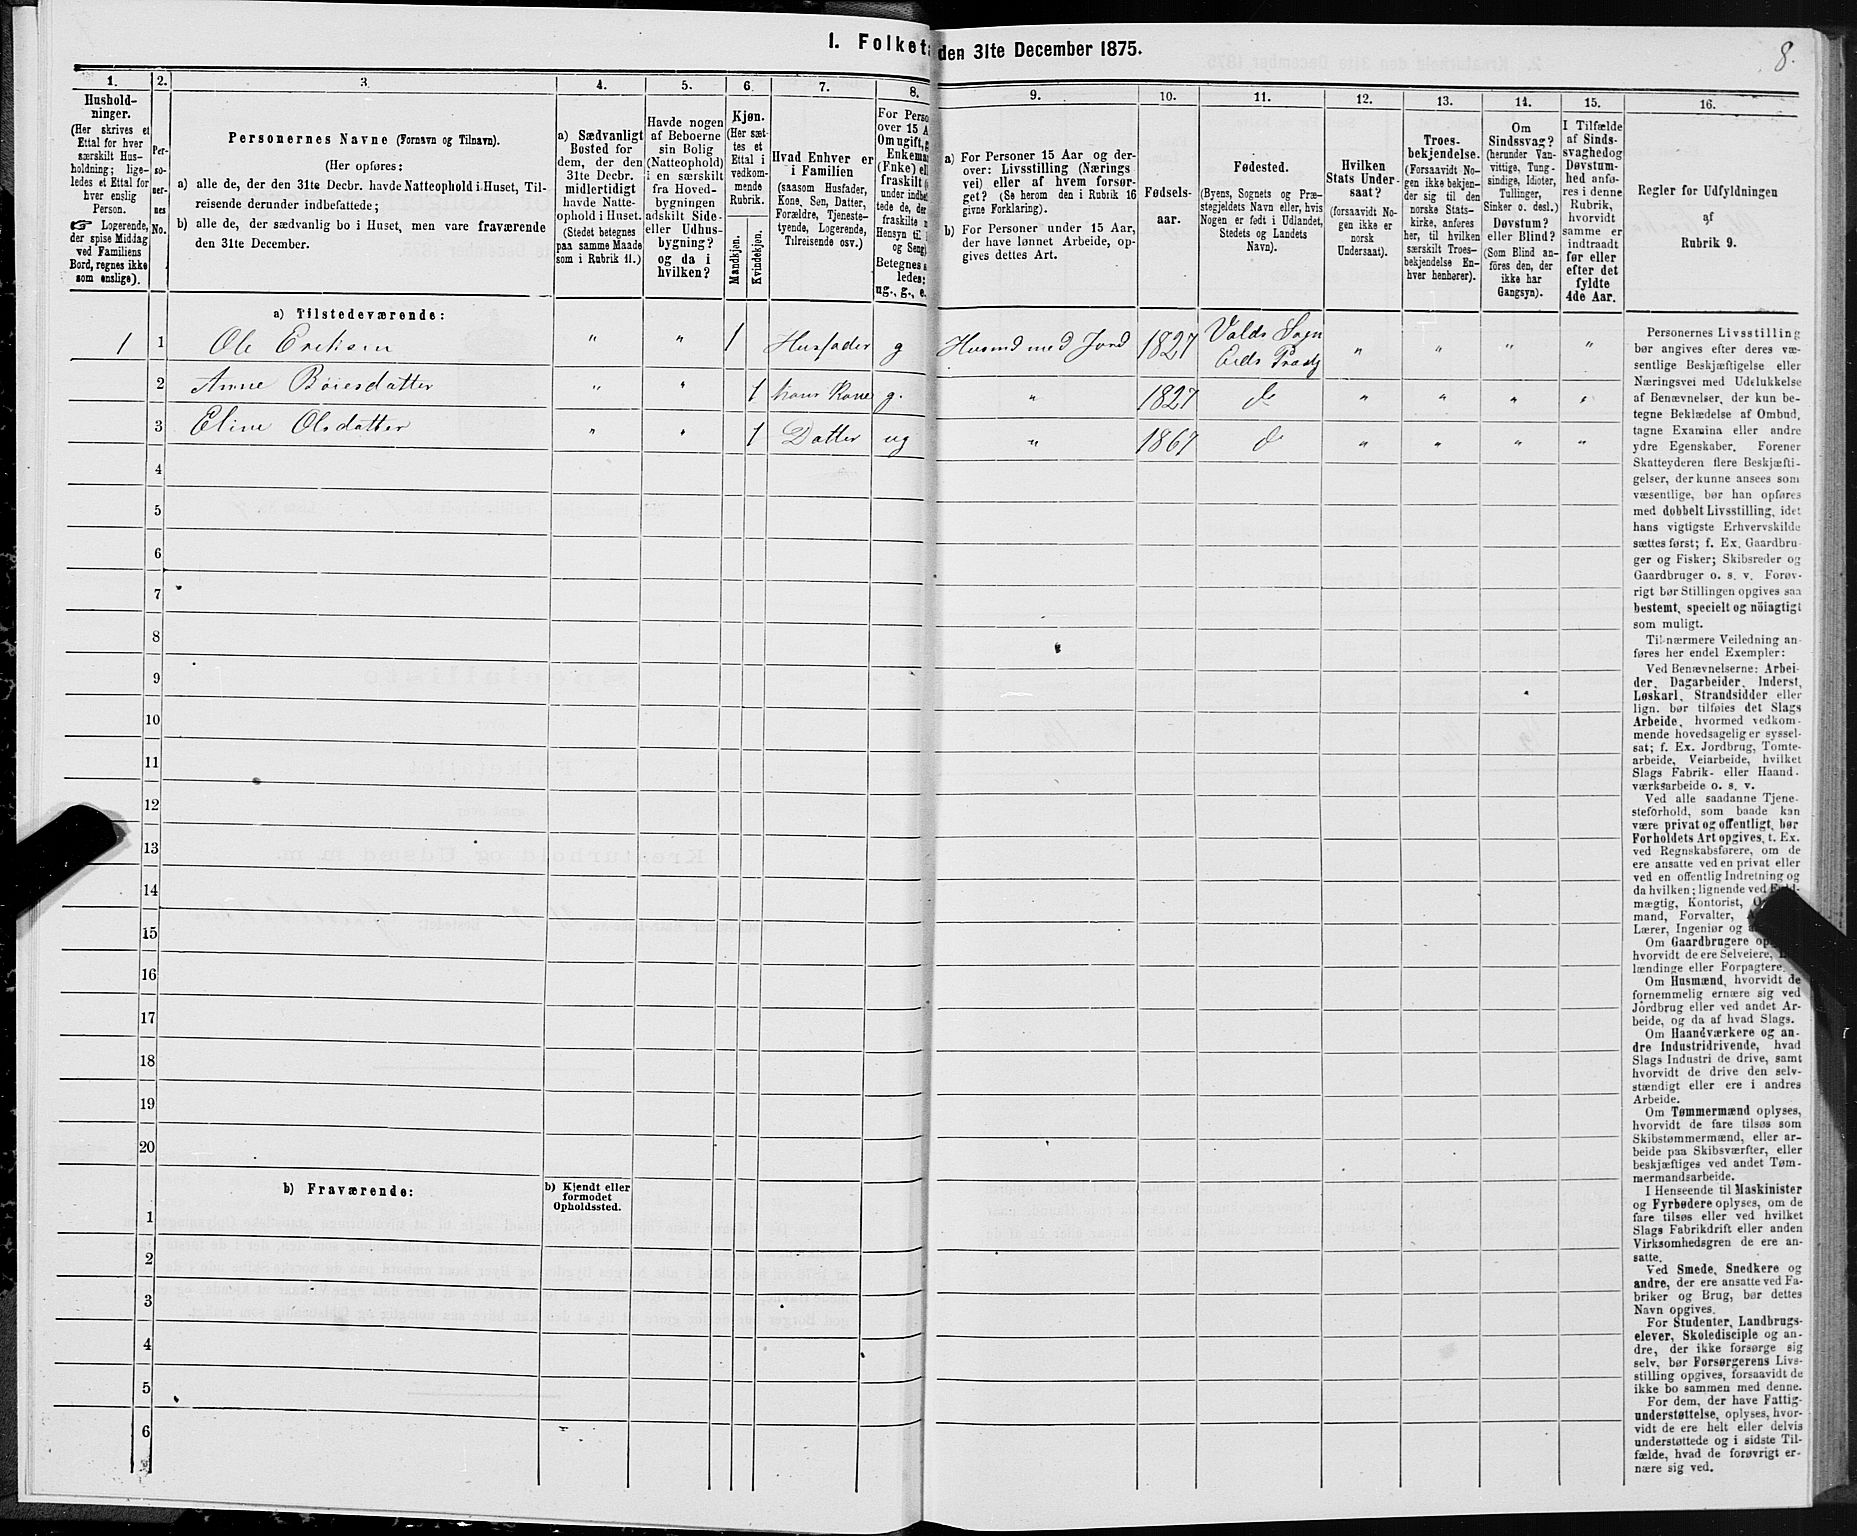 I. Folket
den 31te December 1875.
8.
1.
2.
3.
4.
5.
6.
7.
8.
9.
10.
11.
12.
13.
14.
15.
16.
Hushold-
ninger.
(Her skrives et
Ettal for hver
særskilt Hus-
holdning; lige-
ledes et Ettal for
hver enslig
Person.
☞ Logerende,
der spise Middag
ved Familiens
Bord, regnes ikke
som enslige).
Per-
so-
ner-
nes
No.
Personernes Navne (Fornavn og Tilnavn).
(Her opføres:
a) alle de, der den 31te Decbr. havde Natteophold i Huset, Til-
reisende derunder indbefattede;
b) alle de, der sædvanlig bo i Huset, men vare fraværende
den 31te December.
a) Sædvanligt
Bosted for
dem, der den
31te Decbr.
midlertidigt
havde Natte-
ophold i Huset.
(Stedet betegnes
paa samme Maade
som i Rubrik 11.)
Havde nogen
af Beboerne
sin Bolig
(Natteophold)
i en særskilt
fra Hoved-
bygningen
adskilt Side-
eller Udhus-
bygning?
og da i
hvilken?
Kjøn.
(Her sæt-
tes et
Ettal i
vedkom-
mende
Rubrik.
Mandkjøn.
Kvindekjøn.
Hvad Enhver er
i Familien
(saasom Husfader,
Kone, Søn, Datter,
Forældre, Tjeneste-
tyende, Logerende,
Tilreisende osv.)
For Perso
over 15 A
Om ugift, g
Enkema
(Enke) ell
fraskilt (
under indbe
tede de, der
fraskilte
Hensyn til
og Seng)
Betegnes s
ledes:
ug., g., e.
a) For Personer 15 Aar og der-
over: Livsstilling (Nærings
vei) eller af hvem forsør-
get? (Se herom den i Rubrik 16
givne Forklaring).
b) For Personer under 15 Aar,
der have lønnet Arbeide, op-
gives dettes Art.
Fødsels-
aar.
Fødested.
(Byens, Sognets og Præ-
stegjeldets Navn eller, hvis
Nogen er født i Udlandet,
Stedets og Landets
Navn).
Hvilken
Stats Under-
saat?
(forsaavidt No-
gen ikke er
norsk
Undersaat).
Troes-
bekjendelse.
(Forsaavidt No-
gen ikke bekjen-
der sig til den
norske Stats-
kirke, anføres
her, til hvilken
særskilt Troes-
bekjendelse En-
hver henhører).
Om
Sindssvag?
(herunder Van-
vittige, Tung-
sindige, Idioter,
Tullinger,
Sinker o. desl.)
Døvstum?
eller Blind?
(Som Blind an-
føres den, der
ikke har
Gangsyn).
I Tilfælde
af Sinds-
svaghed og
Døvstum-
hed anfø-
res i denne
Rubrik,
hvorvidt
samme er
indtraadt
før eller
efter det
fyldte
4de Aar.
Regler for Udfyldningen
af
Rubrik 9.
a) Tilstedeværende:
1 1 Ole Eriksen " " 1 Husfader g Husmd med Jord 1827 Volds Sogn Eids Præstg " " " "
2 Anne Böiesdatter " " 1 hans Kone g. " 1827 do " " " "
3 Eline Olsdatter " " 1 Datter ug " 1867 do " " " "
4
5
6
7
8
9
10
11
12
13
14
15
16
17
18
19
20
b) Fraværende:
b) Kjendt eller
formodet
Opholdssted.
1
2
3
4
5
6
Personernes Livsstilling
bør angives efter deres væ-
sentlige Beskjæftigelse eller
Næringsvei med Udelukkelse
af Benævnelser, der kun be-
tegne Beklædelse af Ombud,
tagne Examina eller andre
ydre Egenskaber. Forener
Skatteyderen flere Beskjæfti-
gelser, der kunne ansees som
væsentlige, bør han opføres
med dobbelt Livsstilling, idet
hans vigtigste Erhvervskilde
sættes først; f. Ex. Gaardbru-
ger og Fisker; Skibsreder og
Gaardbruger o. s. v. Forøv-
rigt bør Stillingen opgives saa
bestemt, specielt og nöiagtigt
som muligt.
Til nærmere Veiledning an-
føres her endel Exempler:
Ved Benævnelserne: Arbei-
der, Dagarbeider, Inderst,
Løskarl, Strandsidder eller
lign. bør tilføies det Slags
Arbeide, hvormed vedkom-
mende hovedsagelig er syssel-
sat; f. Ex. Jordbrug, Tomte-
arbeide, Veiarbeide, hvilket
Slags Fabrik- eller Haand-
værksarbeide o. s. v.
Ved alle saadanne Tjene-
steforhold, som baade kan
være privat og offentligt, bør
Forholdets Art opgives, t. Ex.
ved Regnskabsførere, om de
ere ansatte ved en privat eller
ved en offentlig Indretning og
da hvilken; lignende ved Fuld-
mægtig, Kontorist, O
mand, Forvalter, A
Lærer, Ingeniør og a
Om Gaardbrugere op
hvorvidt de ere Selveiere, L
lændinge eller Forpagtere.
Om Husmænd, hvorvidt de
fornemmelig ernære sig ved
Jordbrug eller ved andet Ar-
beide, og da af hvad Slags.
Om Haandværkere og an-
dre Industridrivende, hvad
Slags Industri de drive, samt
hvorvidt de drive den selv-
stændigt eller ere i andres
Arbeide.
Om Tømmermænd oplyses,
hvorvidt de fare tilsøs som
Skibstømmermænd, eller ar-
beide paa Skibsværfter, eller
beskjæftiges ved andet Tøm-
mermandsarbeide.
I Henseende til Maskinister
og Fyrbødere oplyses, om de
fare tilsøs eller ved hvilket
Slags Fabrikdrift eller anden
Virksomhedsgren de ere an-
satte.
Ved Smede, Snedkere og
andre, der ere ansatte ved Fa-
briker og Brug, bør dettes
Navn opgives.
For Studenter, Landbrugs-
elever, Skoledisciple og an-
dre, der ikke forsørge sig
selv, bør Forsørgerens Livs-
stilling opgives, forsaavidt de
ikke bo sammen med denne.
For dem, der have Fattig-
understøttelse, oplyses, hvor-
vidt de ere helt eller delvis
understøttede og i sidste Til-
fælde, hvad de forøvrigt er-
nære sig ved.